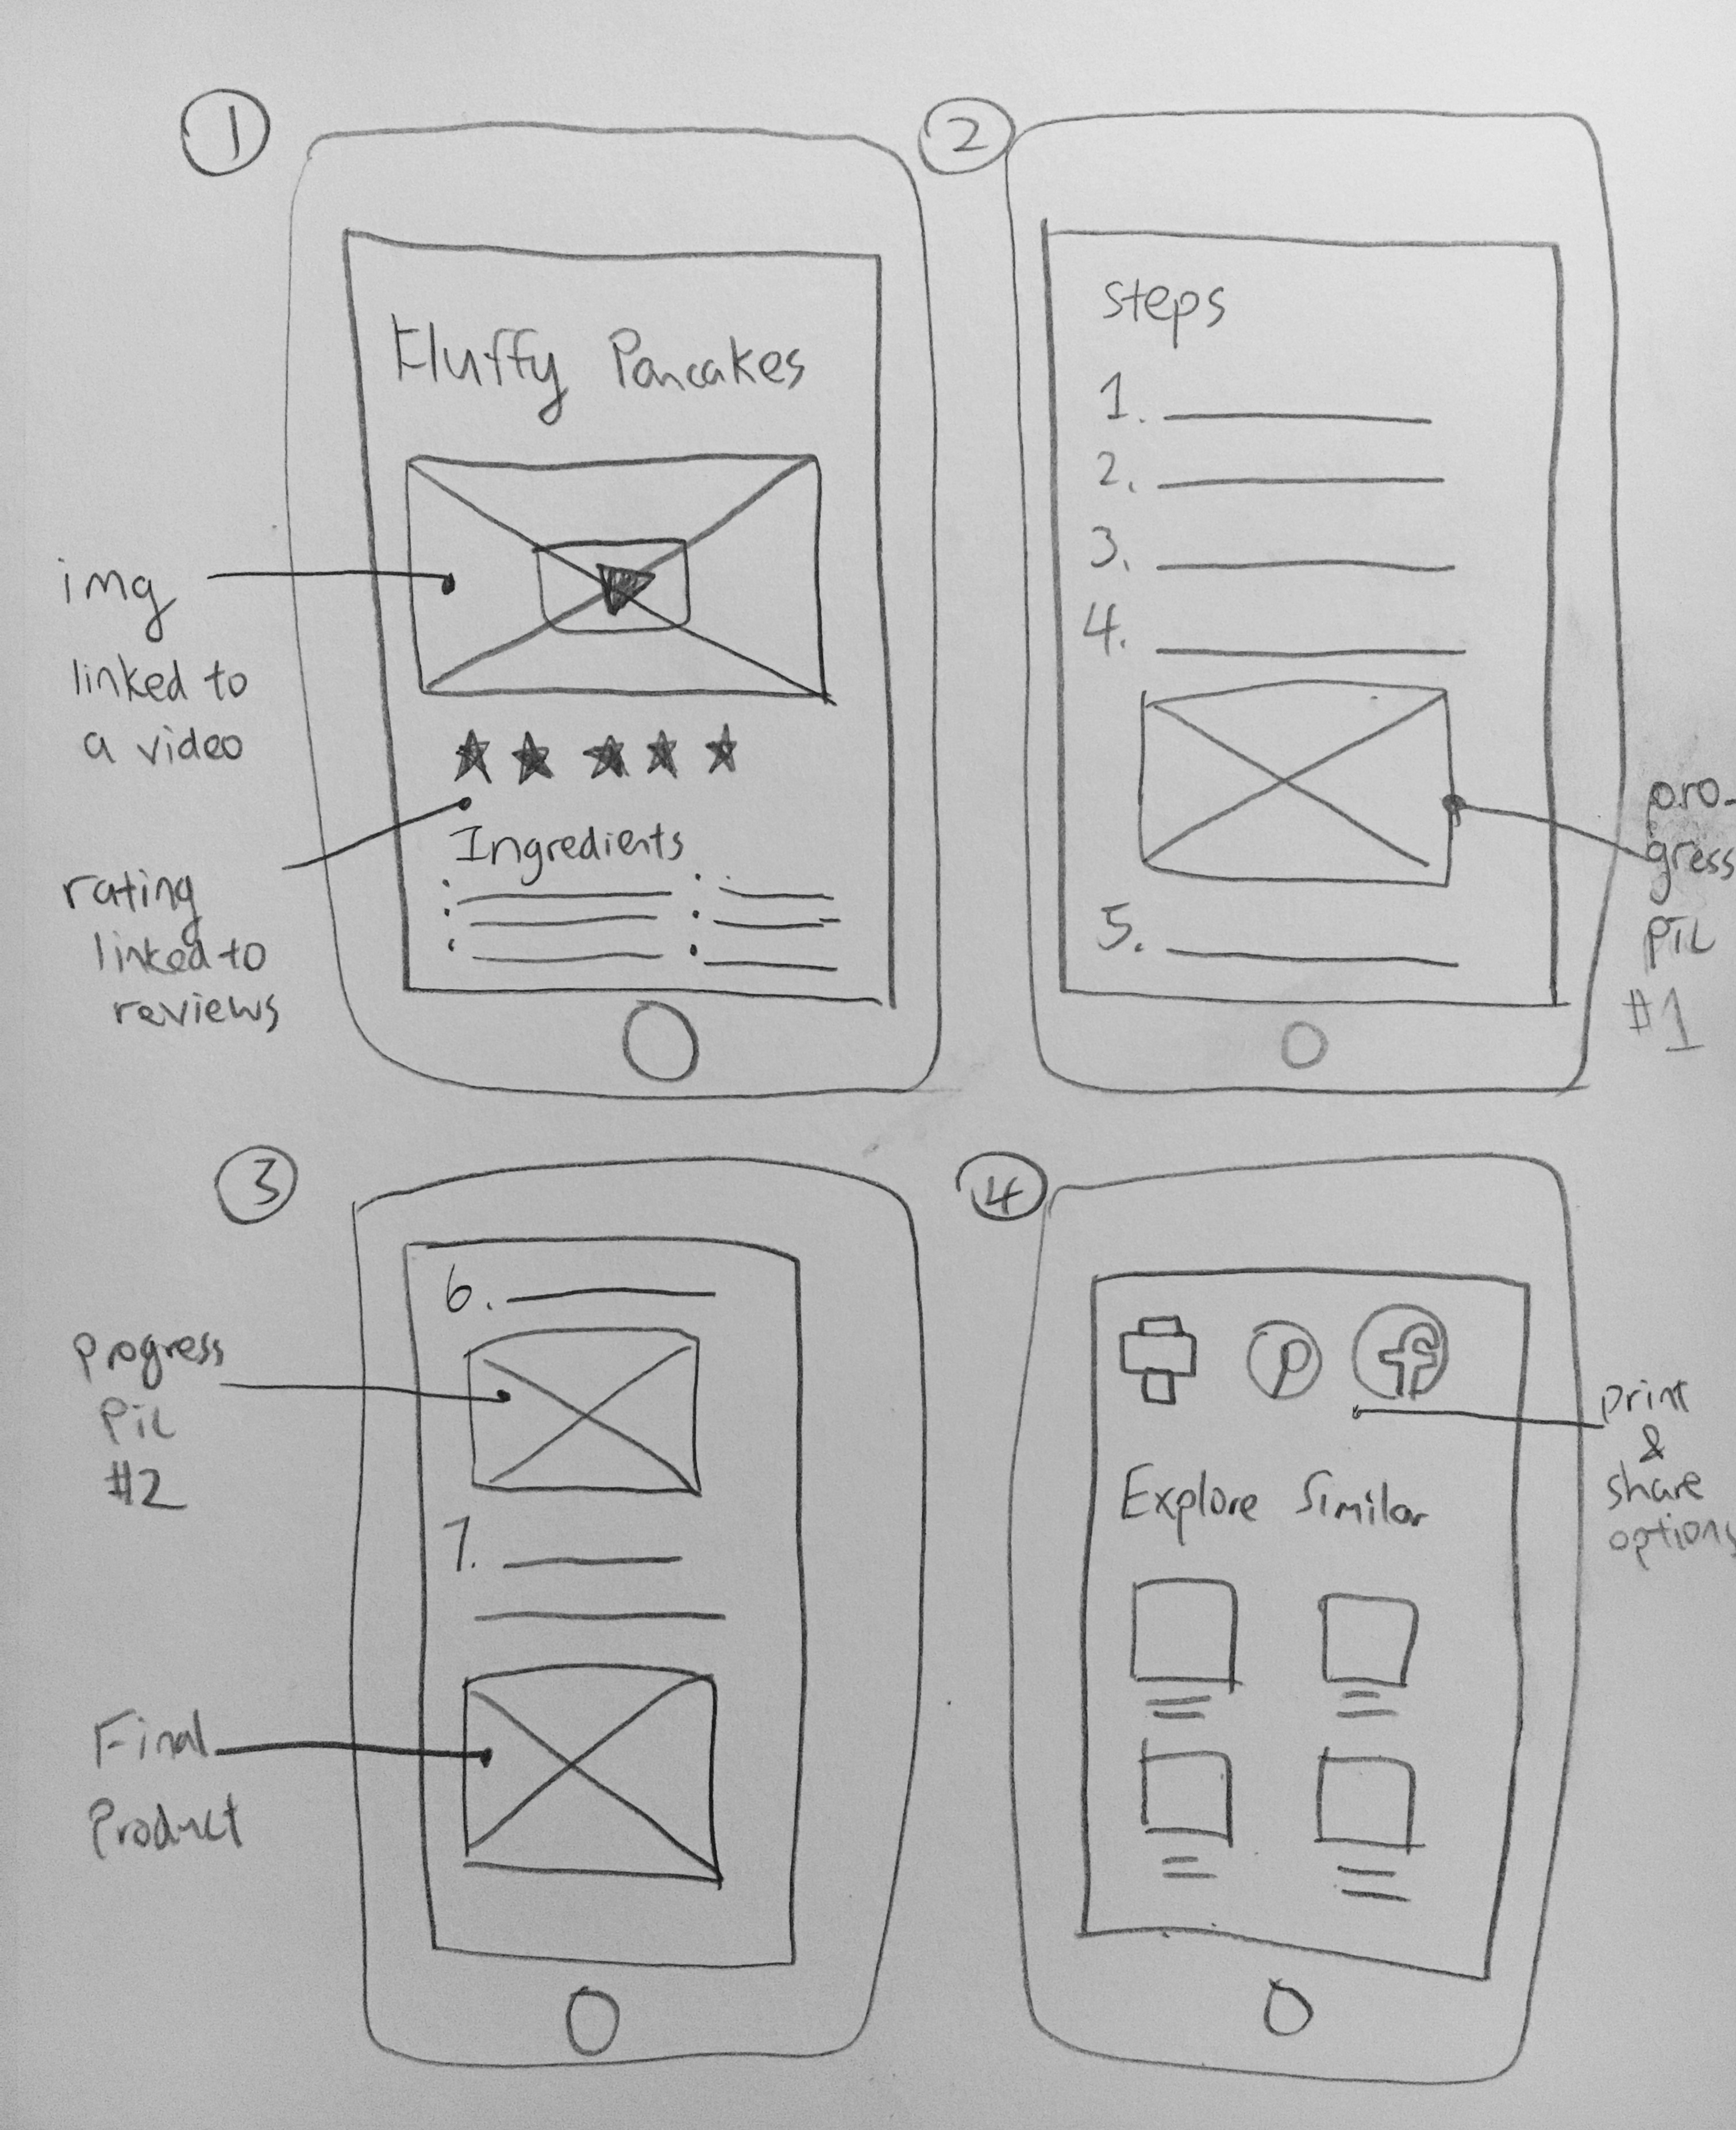 1
Fluffy Pancakes
img
linked to
a video
rating
linked to
reviews
Ingredients
2
steps
1.
2.
3.
4.
5.
pro-
gress
pic
#1
3
6.
Progress
Pic
#2
7.
Final
Product
4
P f
print
&
share
options
Explore Similar